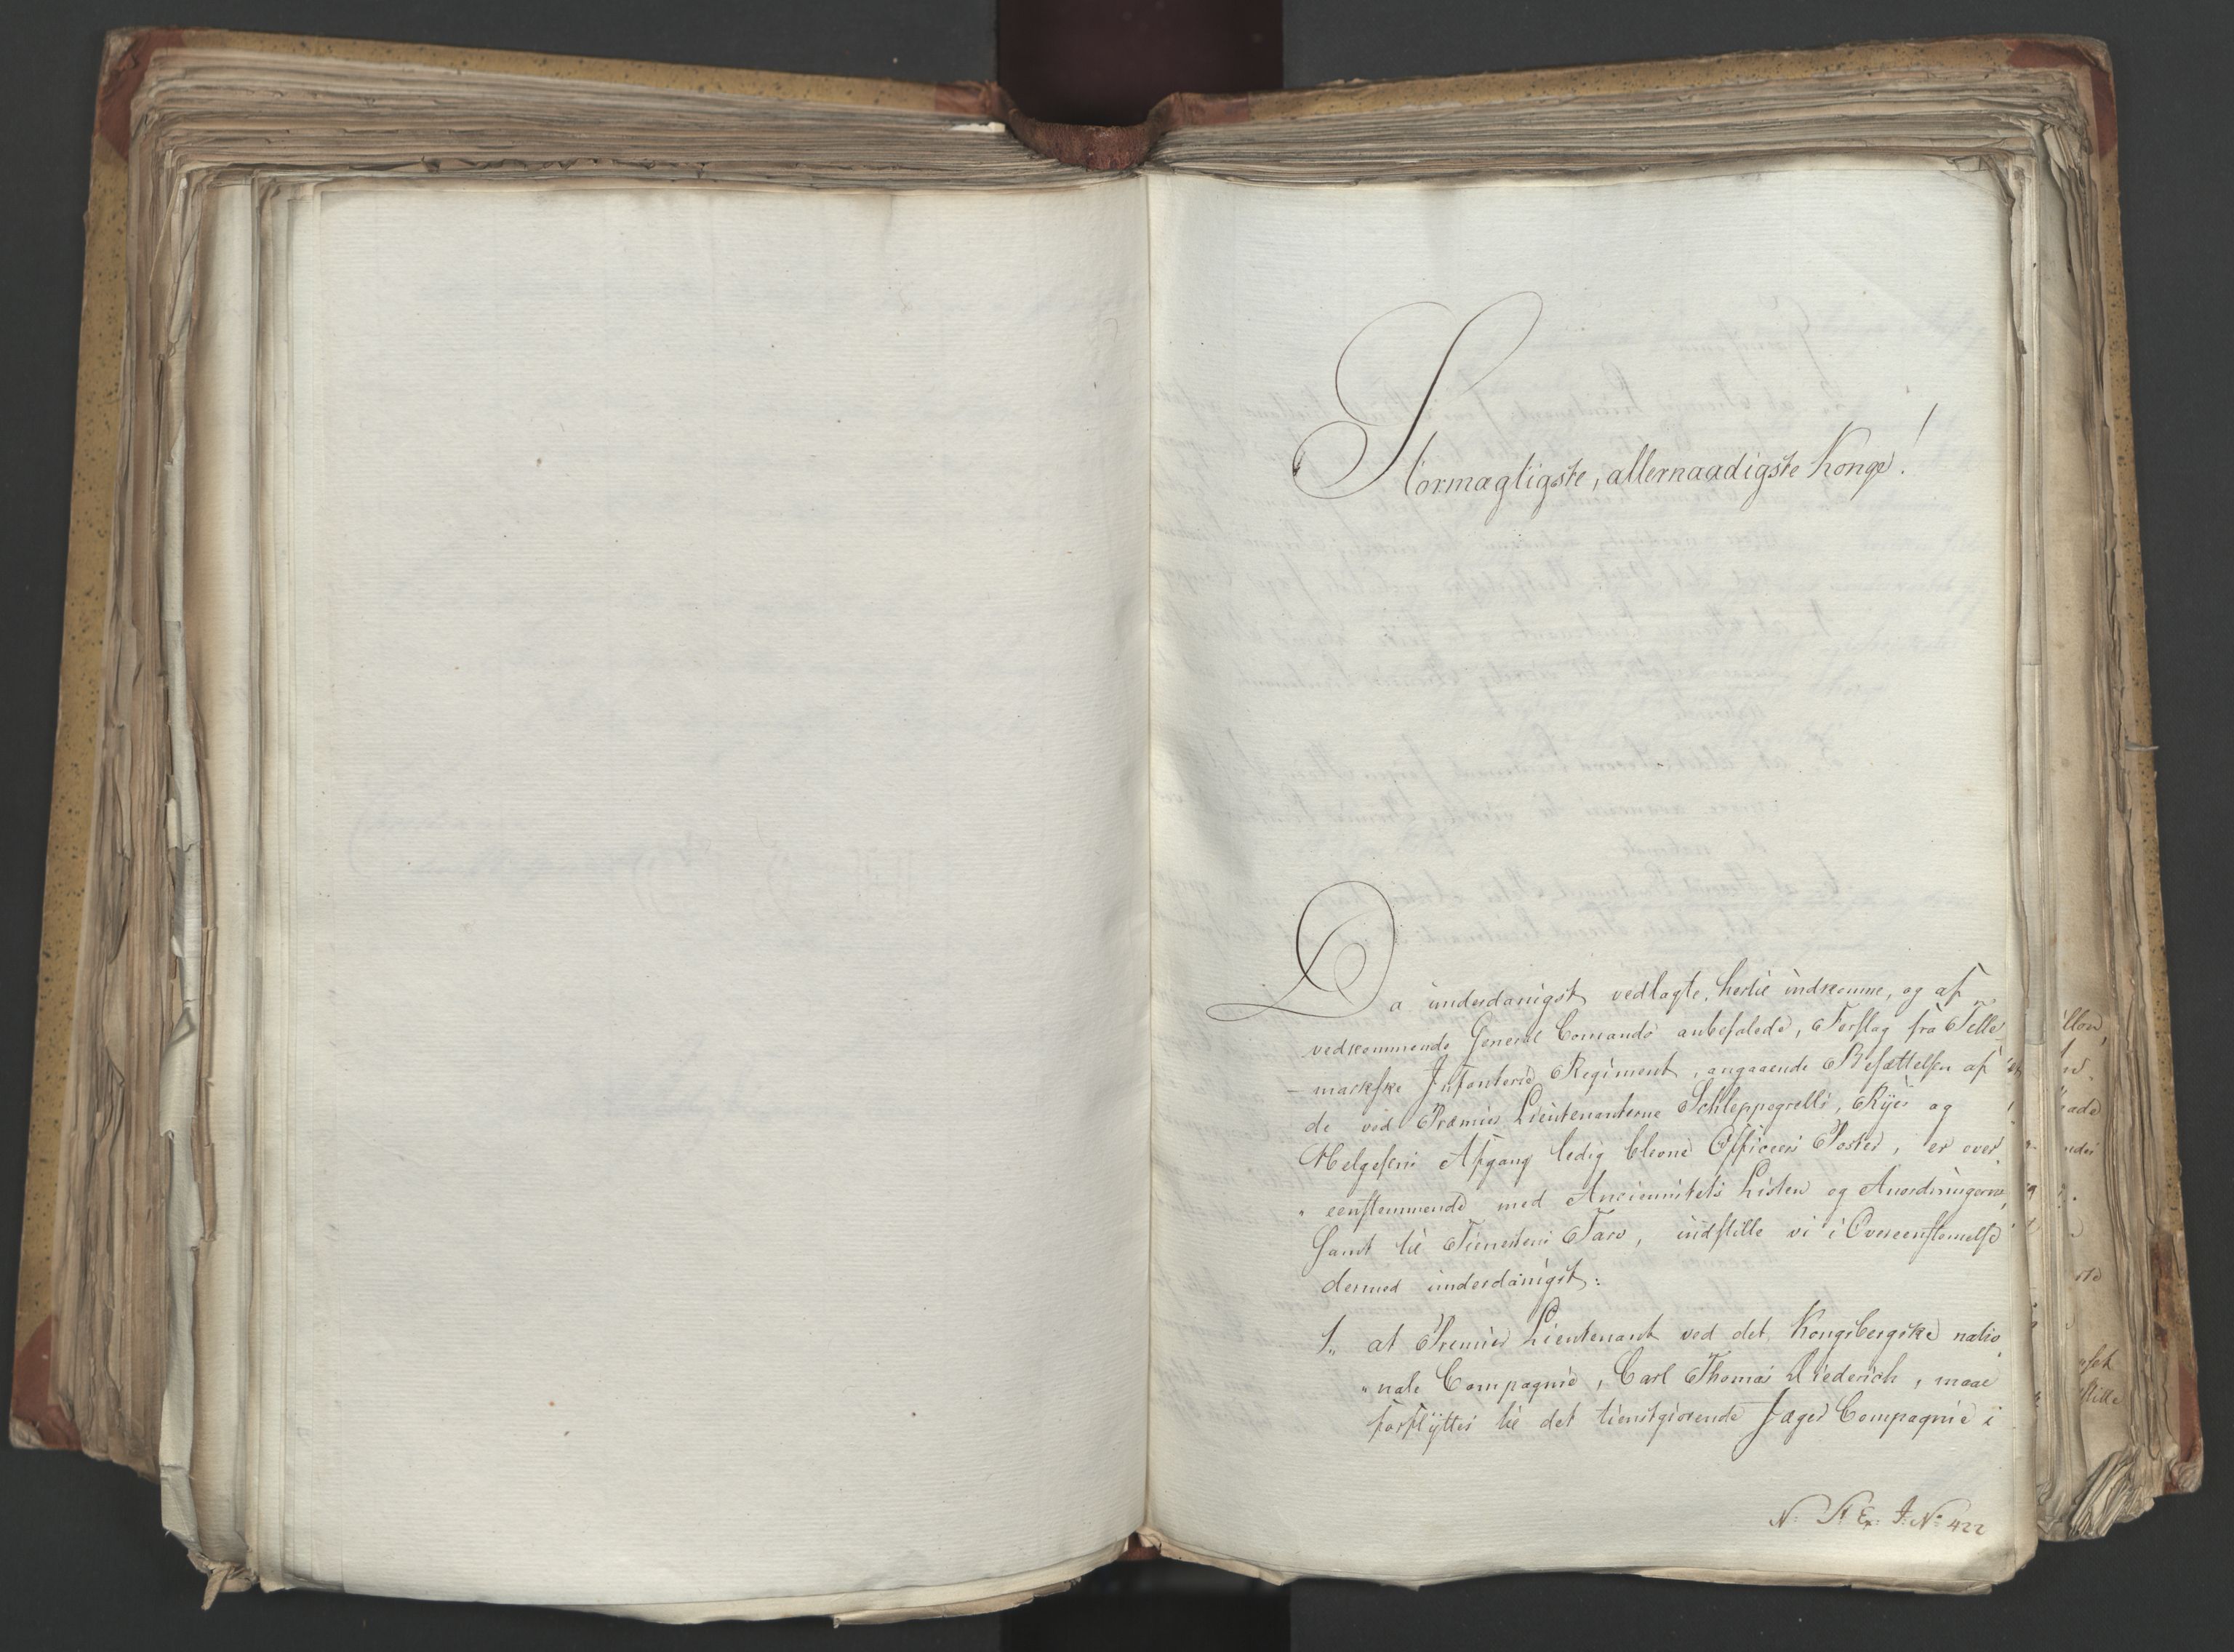 Stormægtigste, allernaadigste Konge!
Da underdanigst vedlagte, hertil indkomne, og af
vedkommende General Comando anbefalede, Forslag fra Telle-
-markske Infanterie Regiment, angaaende Besættelsen af
de ved Premier Lieutenanterne Schleppegrells, Ryes og
Helgesens Afgang ledig blevne Officeers Poster, er over
eenstemmende med Anciennitets Listen og Anordningerne,
samt til Tienestens Tarv, indstille vi i Overeenstemelse
dermed underdanigst:
1., at Premier Lieutenant ved det Kongsbergske natio
"nale Compagnie, Carl Thomas Diederich, maae
forflyttes til det tienstgiørende Jæger Compagnie i
N: A Ex. J: No 422